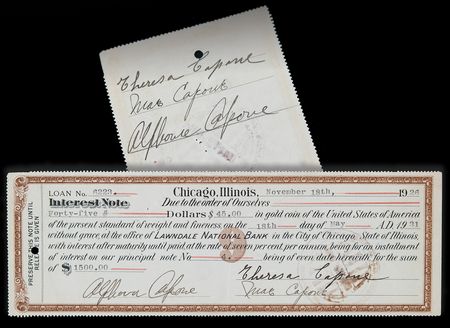 Theresa Capone
Mae Capone
Alphonse Capone
PRESERVE THIS NOTE UNTIL
RELEASE IS GIVEN
LOAN No. 6223. Chicago, Illinois, November 18th, 1926
Interest Note Due to the order of Ourselves
Forty-five # Dollars $45.00 in gold coin of the United States of America
of the present standard of weight and fineness on the 18th day of May A.D 1931
without grace, at the office of LAWNDALE NATIONAL BANK in the City of Chicago, State of Illinois,
with interest after maturity until paid, at the rate of seven per cent, per annum, being for an installment
of interest on our principal note No. being of even date herewith for the sum
of $ 1500.00
Alphonse Capone
Theresa Capone
Mae Capone